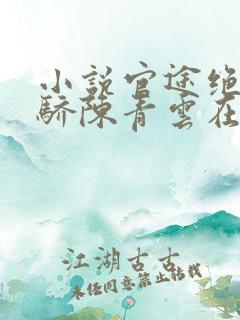 小说官途绝
骄陈青云在
江湖古古
未经同意禁止转载